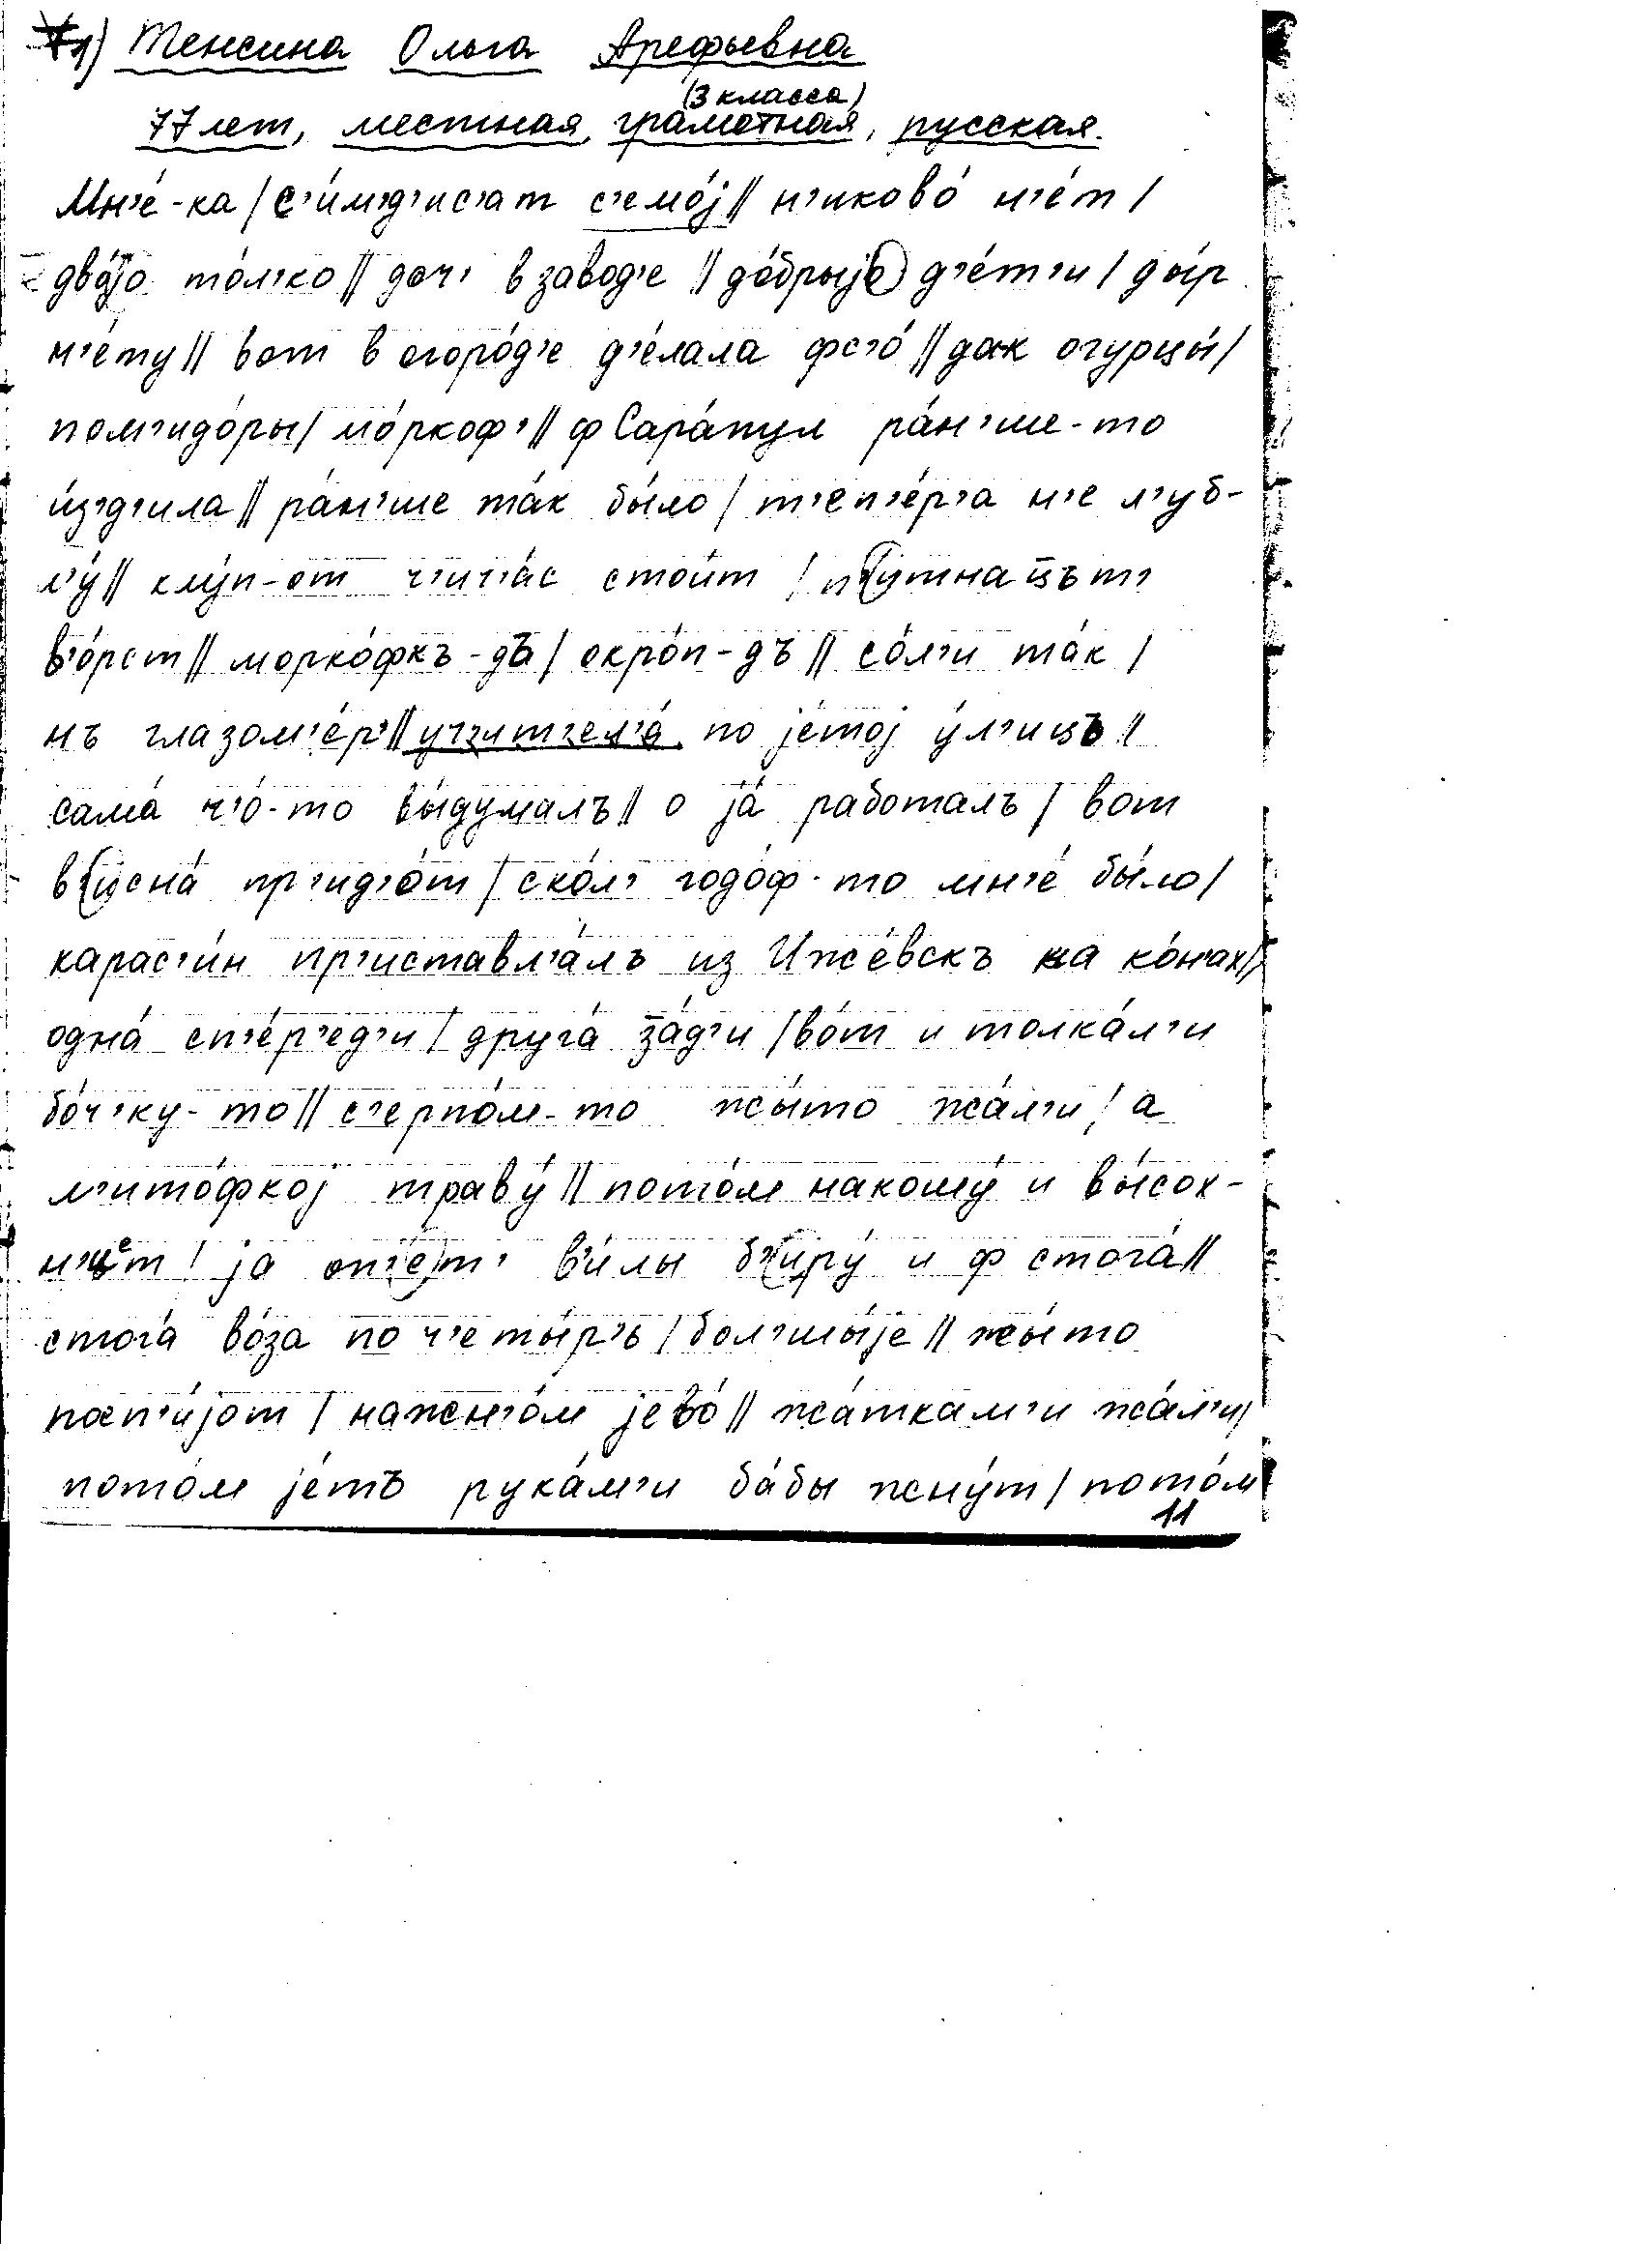 1) Тенсина Ольга Арефьевна
(3 класса)
77 лет, местная, грамотная, русская.
Мн'е́-ка / с'и́м'д'ис'ат с'емо́j // н'иково́ н'е́т /
дво́jо то́л'ко // доч' в завод'е // до́брыjе д'е́т'и / ды́р
н'е́ту // вот в огоро́д'е д'е́лала фс'о́ // дак огурцы́ /
пом'идо́ры / мо́ркоф' // ф Сара́пул ра́н'ше-то
и́з'д'ила // ра́н'ше та́к бы́ло / т'еп'е́р'а н'е л'уб-
л'у́ // клу́п-от ч'ич'а́с стои́т / п'утнацът'
в'о́рст // морко́фкъ-дъ / окро́п-дъ // со́л'и та́к /
нъ глазом'е́р // уч'ит'ел'а́ по jе́тоj у́л'ицъ //
сама́ ч'о́-то вы́думалъ // о jа́ работалъ / вот
в'исна́ пр'ид'о́т / ско́л' годо́ф-то мн'е́ бы́ло /
карас'и́н пр'иставл'а́лъ из Иже́вскъ на ко́н'ах //
одна́ сп'е́р'ед'и / друга́ за́д'и / во́т и толка́л'и
бо́ч'ку-то // с'ерпо́м-то жы́то жа́л'и / а
л'ито́фкоj траву́ // пото́м накошу́ и вы́сох-
н'ет / jа оп'е́т' в'и́лы б'иру́ и ф стога́ //
стога́ во́за по ч'еты́р'ь / бол'шы́jе // жы́то
посп'и́jот / нажн'о́м jево́ // жа́ткам'и жа́л'и /
пото́м jе́тъ рука́м'и ба́бы жну́т / пото́м
11